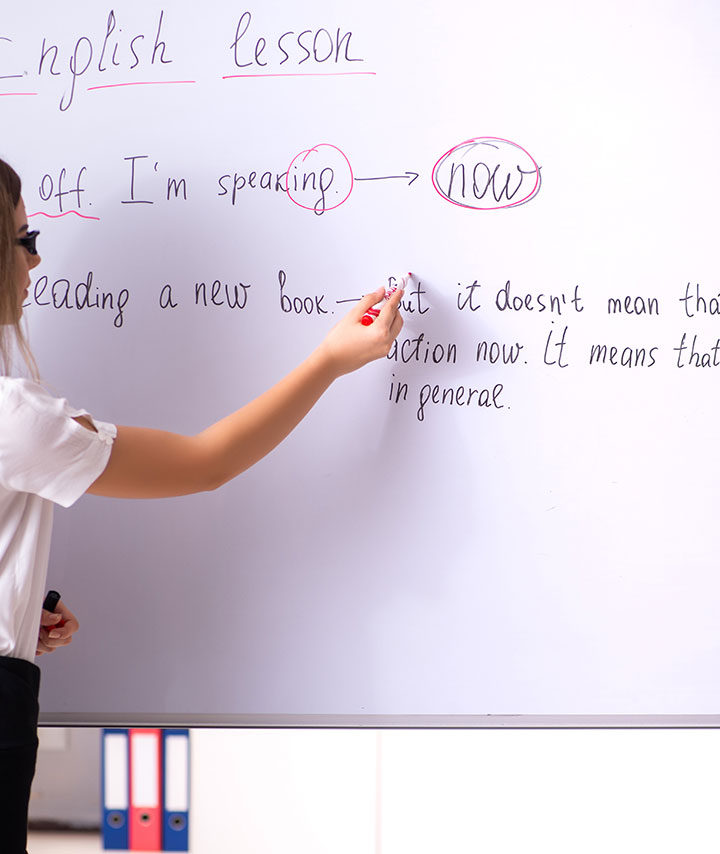 English lesson
off. I'm speaking. → now
reading a new book. — But it doesn't mean tha
action now. It means that
in general.